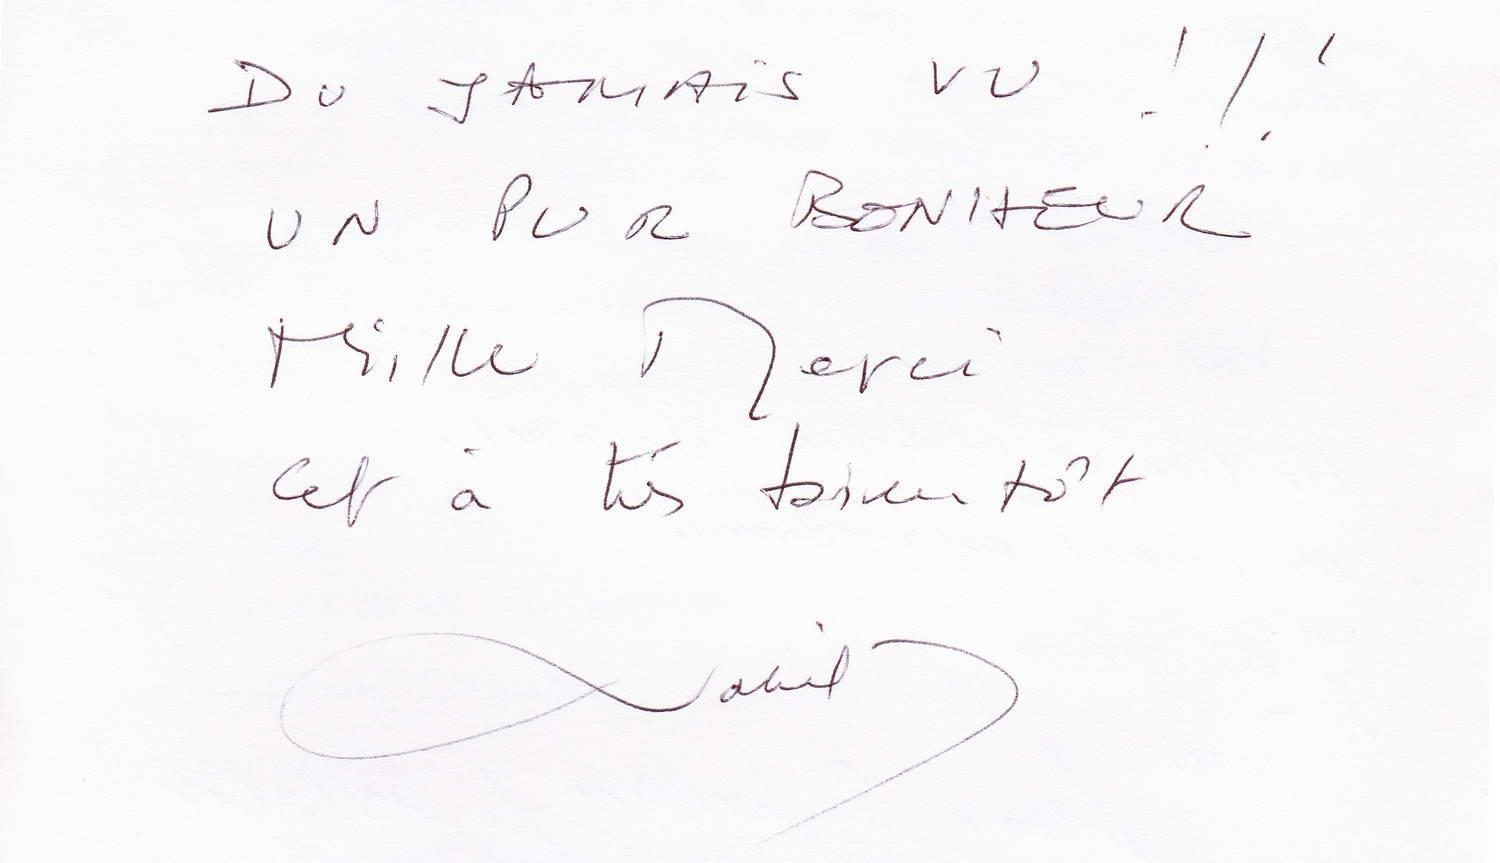 DU JAMAIS VU !!!
UN PUR BONHEUR
Mille Merci
et à très bientôt